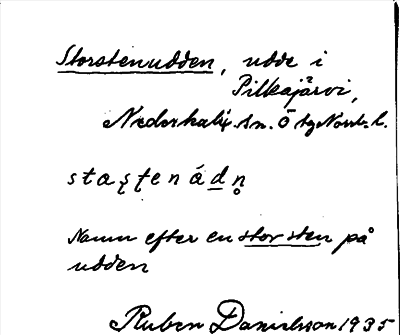 Storstenudden, udde i
Pilkajärvi,
Nederkalix sn. Ö tg Norrb. l.
staʂʈenúdn̥
Namn efter en stor sten på
udden
Ruben Danielsson 1935